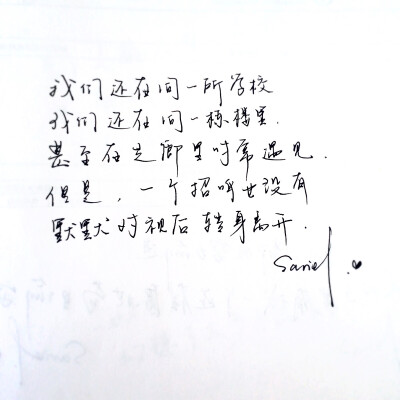 我们还在同一所学校
我们还在同一栋楼里.
甚至在走廊里时常遇见.
但是,一个招呼也没有
默默对视后转身离开.
Sariel